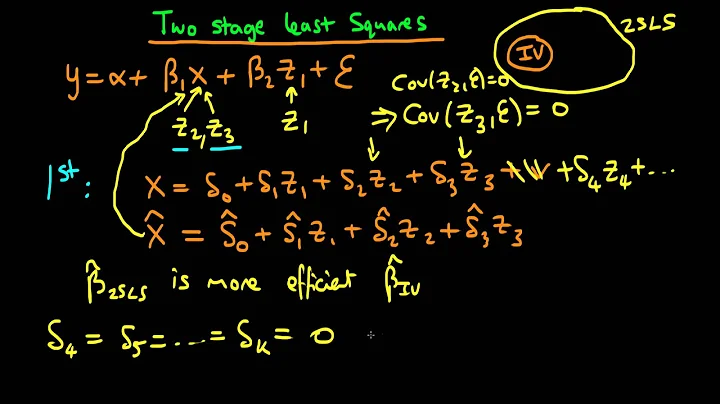 Two stage least Squares
2SLS
IV
y = α + β₁x + β₂z₁ + ε
Cov(z₂,ε)=0
z₂, z₃
z₁
⇒ Cov(z₃,ε) = 0
1st:
x = δ₀ + δ₁z₁ + δ₂z₂ + δ₃z₃ + δ₄z₄ + ...
x̂ = δ̂₀ + δ̂₁z₁ + δ̂₂z₂ + δ̂₃z₃
β̂2SLS is more efficient β̂IV
δ₄ = δ₅ = ... = δₖ = 0